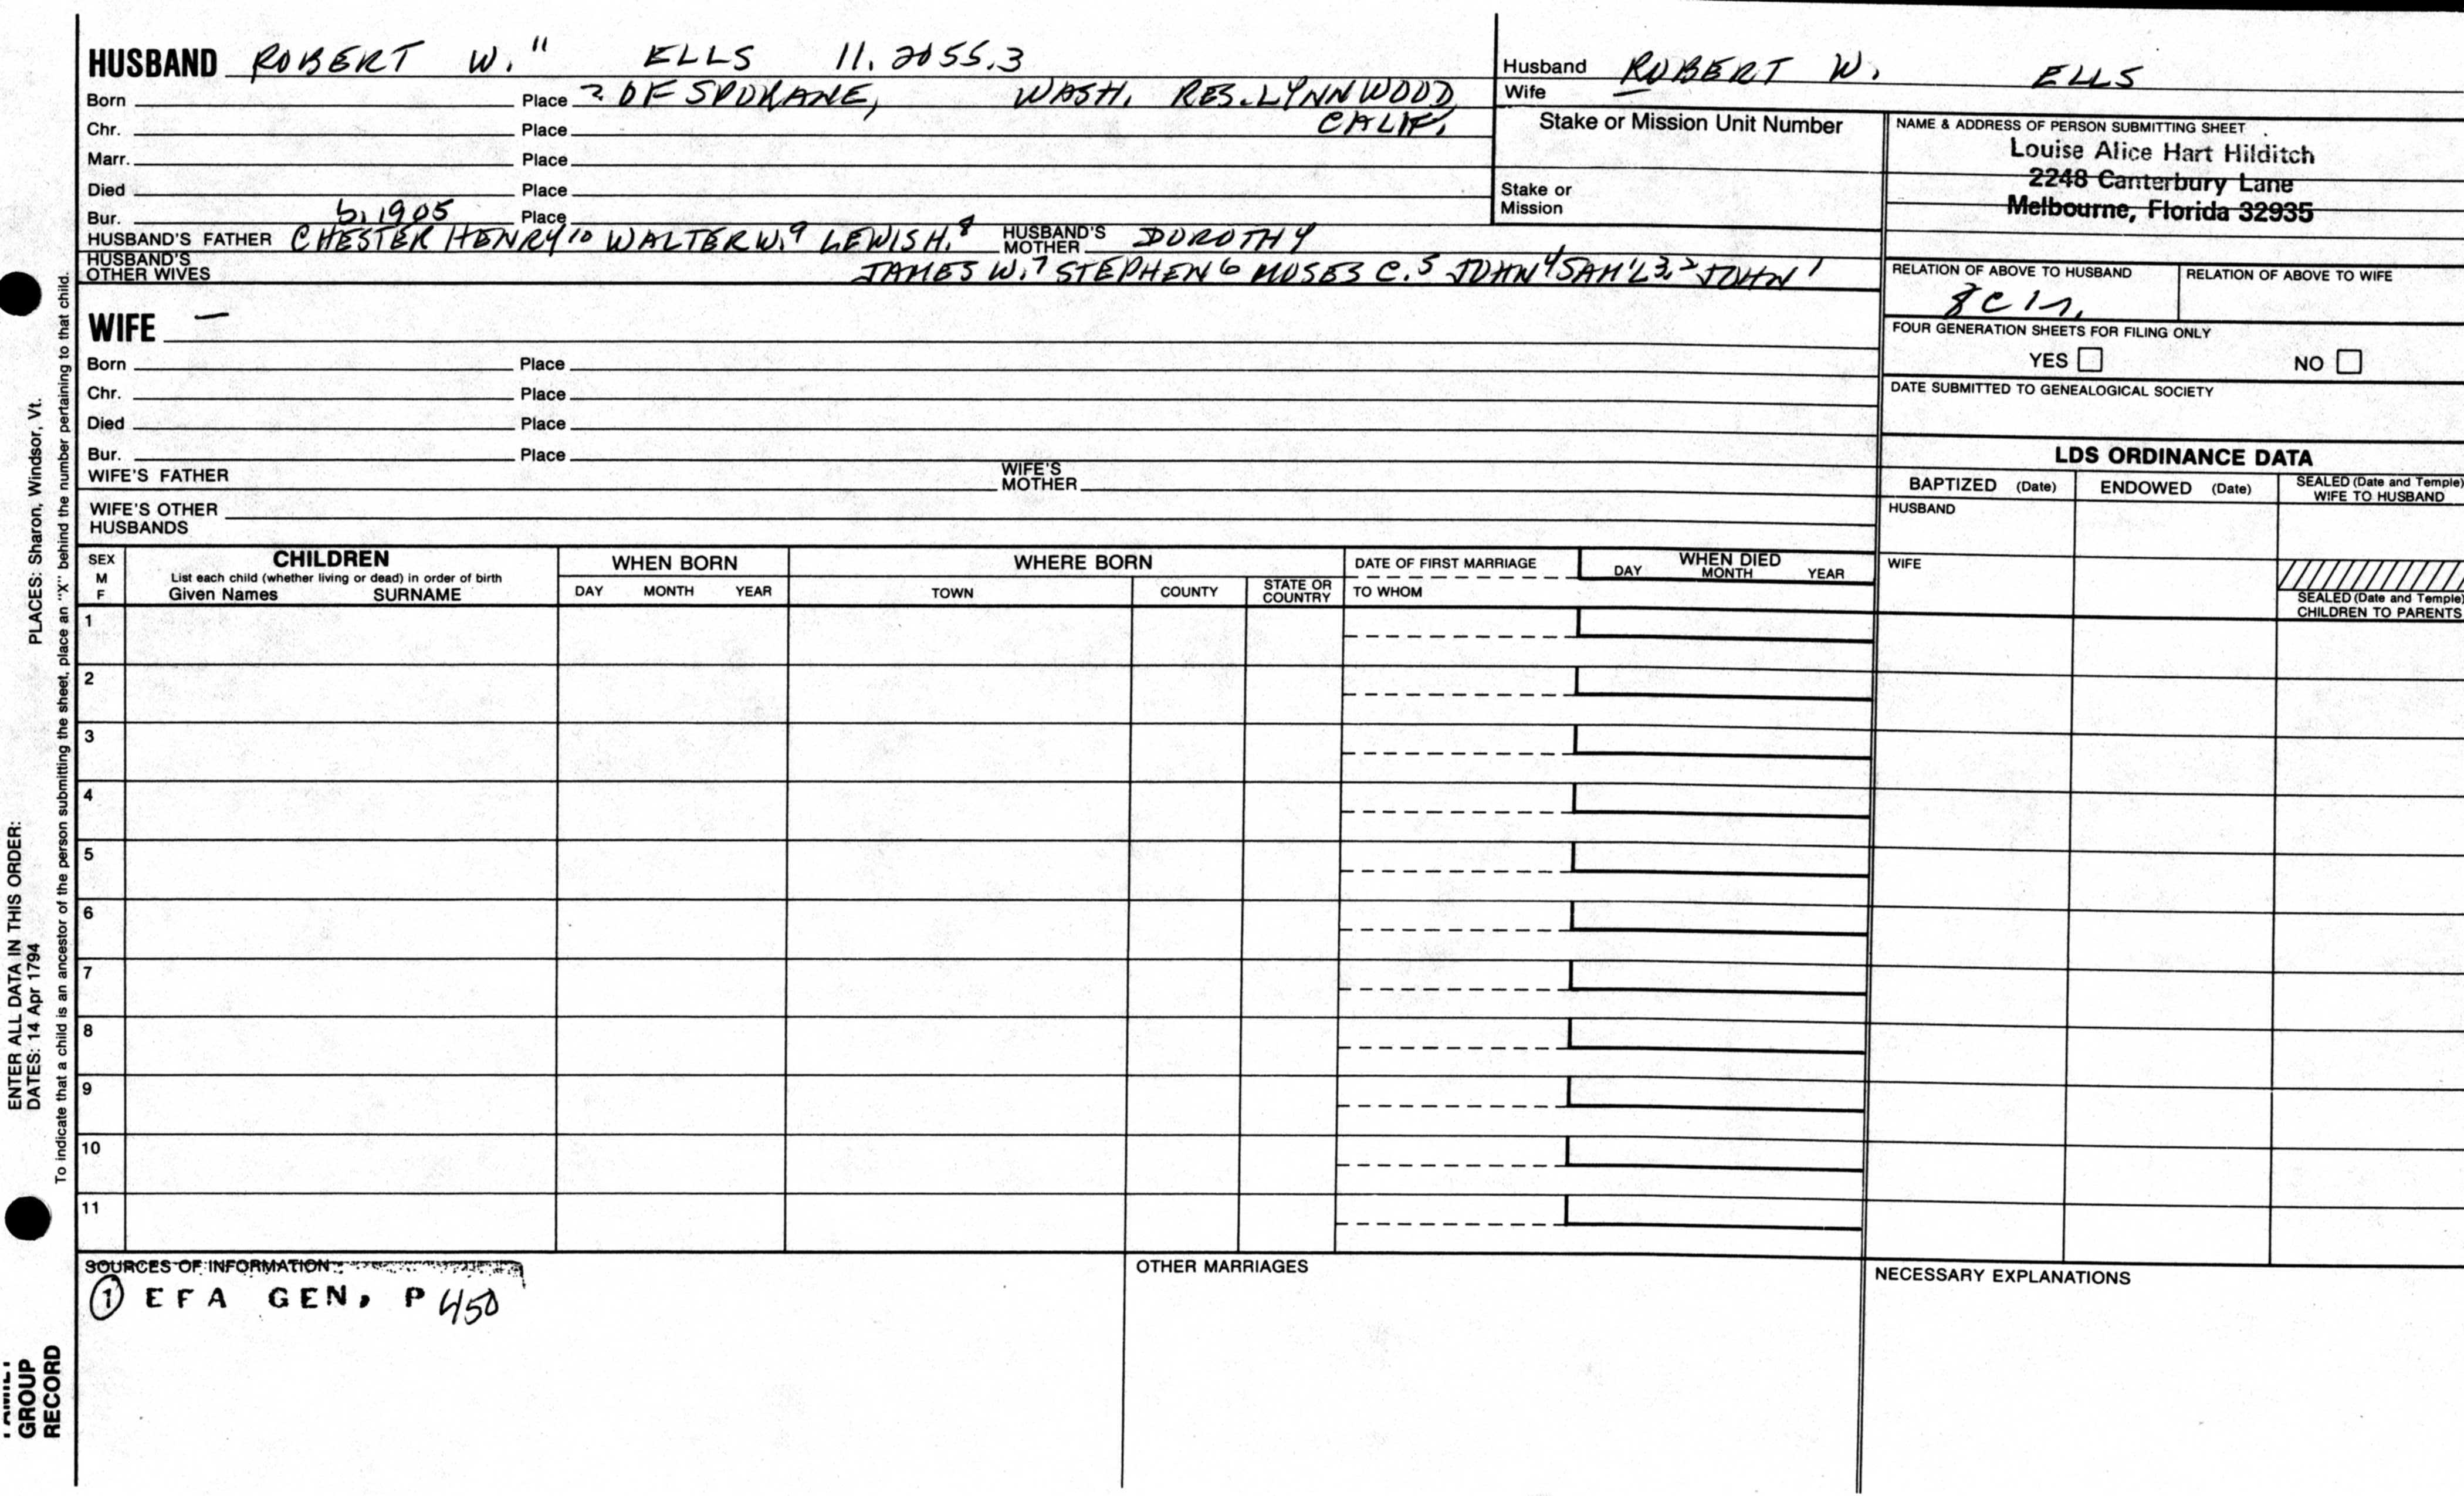 HUSBAND ROBERT W." ELLS 11.2055.3
Born Place ? OF SPOKANE, WASH. RES. LYNNWOOD
Chr. Place CALIF.
Marr. Place
Died Place
Bur. b. 1905 Place
HUSBAND'S FATHER CHESTER HENRY10 WALTER W.9 LEWIS H.8 HUSBAND'S MOTHER DOROTHY
HUSBAND'S OTHER WIVES JAMES W.7 STEPHEN6 MOSES C.5 JOHN4 SAM'L3,2 JOHN1
WIFE —
Born Place
Chr. Place
Died Place
Bur. Place
WIFE'S FATHER WIFE'S MOTHER
WIFE'S OTHER HUSBANDS
Husband ROBERT W. ELLS
Wife
Stake or Mission Unit Number
Stake or Mission
NAME & ADDRESS OF PERSON SUBMITTING SHEET
Louise Alice Hart Hilditch
2248 Canterbury Lane
Melbourne, Florida 32935
RELATION OF ABOVE TO HUSBAND RELATION OF ABOVE TO WIFE
8C1r.
FOUR GENERATION SHEETS FOR FILING ONLY
YES NO
DATE SUBMITTED TO GENEALOGICAL SOCIETY
LDS ORDINANCE DATA
BAPTIZED (Date) ENDOWED (Date) SEALED (Date and Temple) WIFE TO HUSBAND
HUSBAND
WIFE
SEALED (Date and Temple) CHILDREN TO PARENTS
SEX M F
CHILDREN
List each child (whether living or dead) in order of birth
Given Names SURNAME
WHEN BORN
DAY MONTH YEAR
WHERE BORN
TOWN COUNTY STATE OR COUNTRY
DATE OF FIRST MARRIAGE
TO WHOM
WHEN DIED
DAY MONTH YEAR
1
2
3
4
5
6
7
8
9
10
11
SOURCES OF INFORMATION
① EFA GEN, P 450
OTHER MARRIAGES
NECESSARY EXPLANATIONS
ENTER ALL DATA IN THIS ORDER:
DATES: 14 Apr 1794 PLACES: Sharon, Windsor, Vt.
To indicate that a child is an ancestor of the person submitting the sheet, place an "X" behind the number pertaining to that child.
FAMILY
GROUP
RECORD